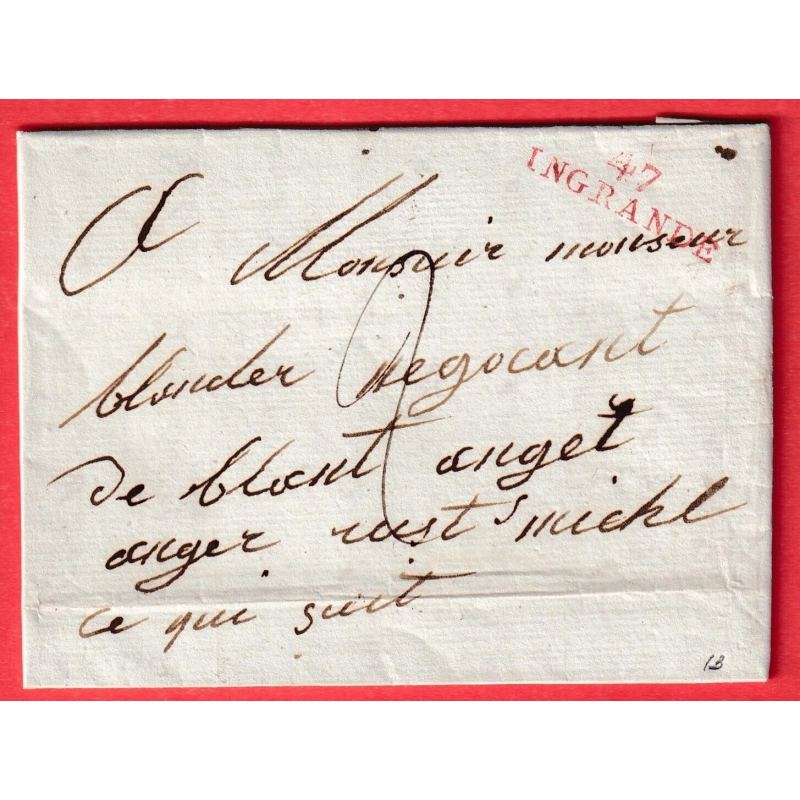 47
INGRANDE
A Monsuir monseur
blonder negocant
De blant anget
anger rust s michl
ce qui suit
2
13